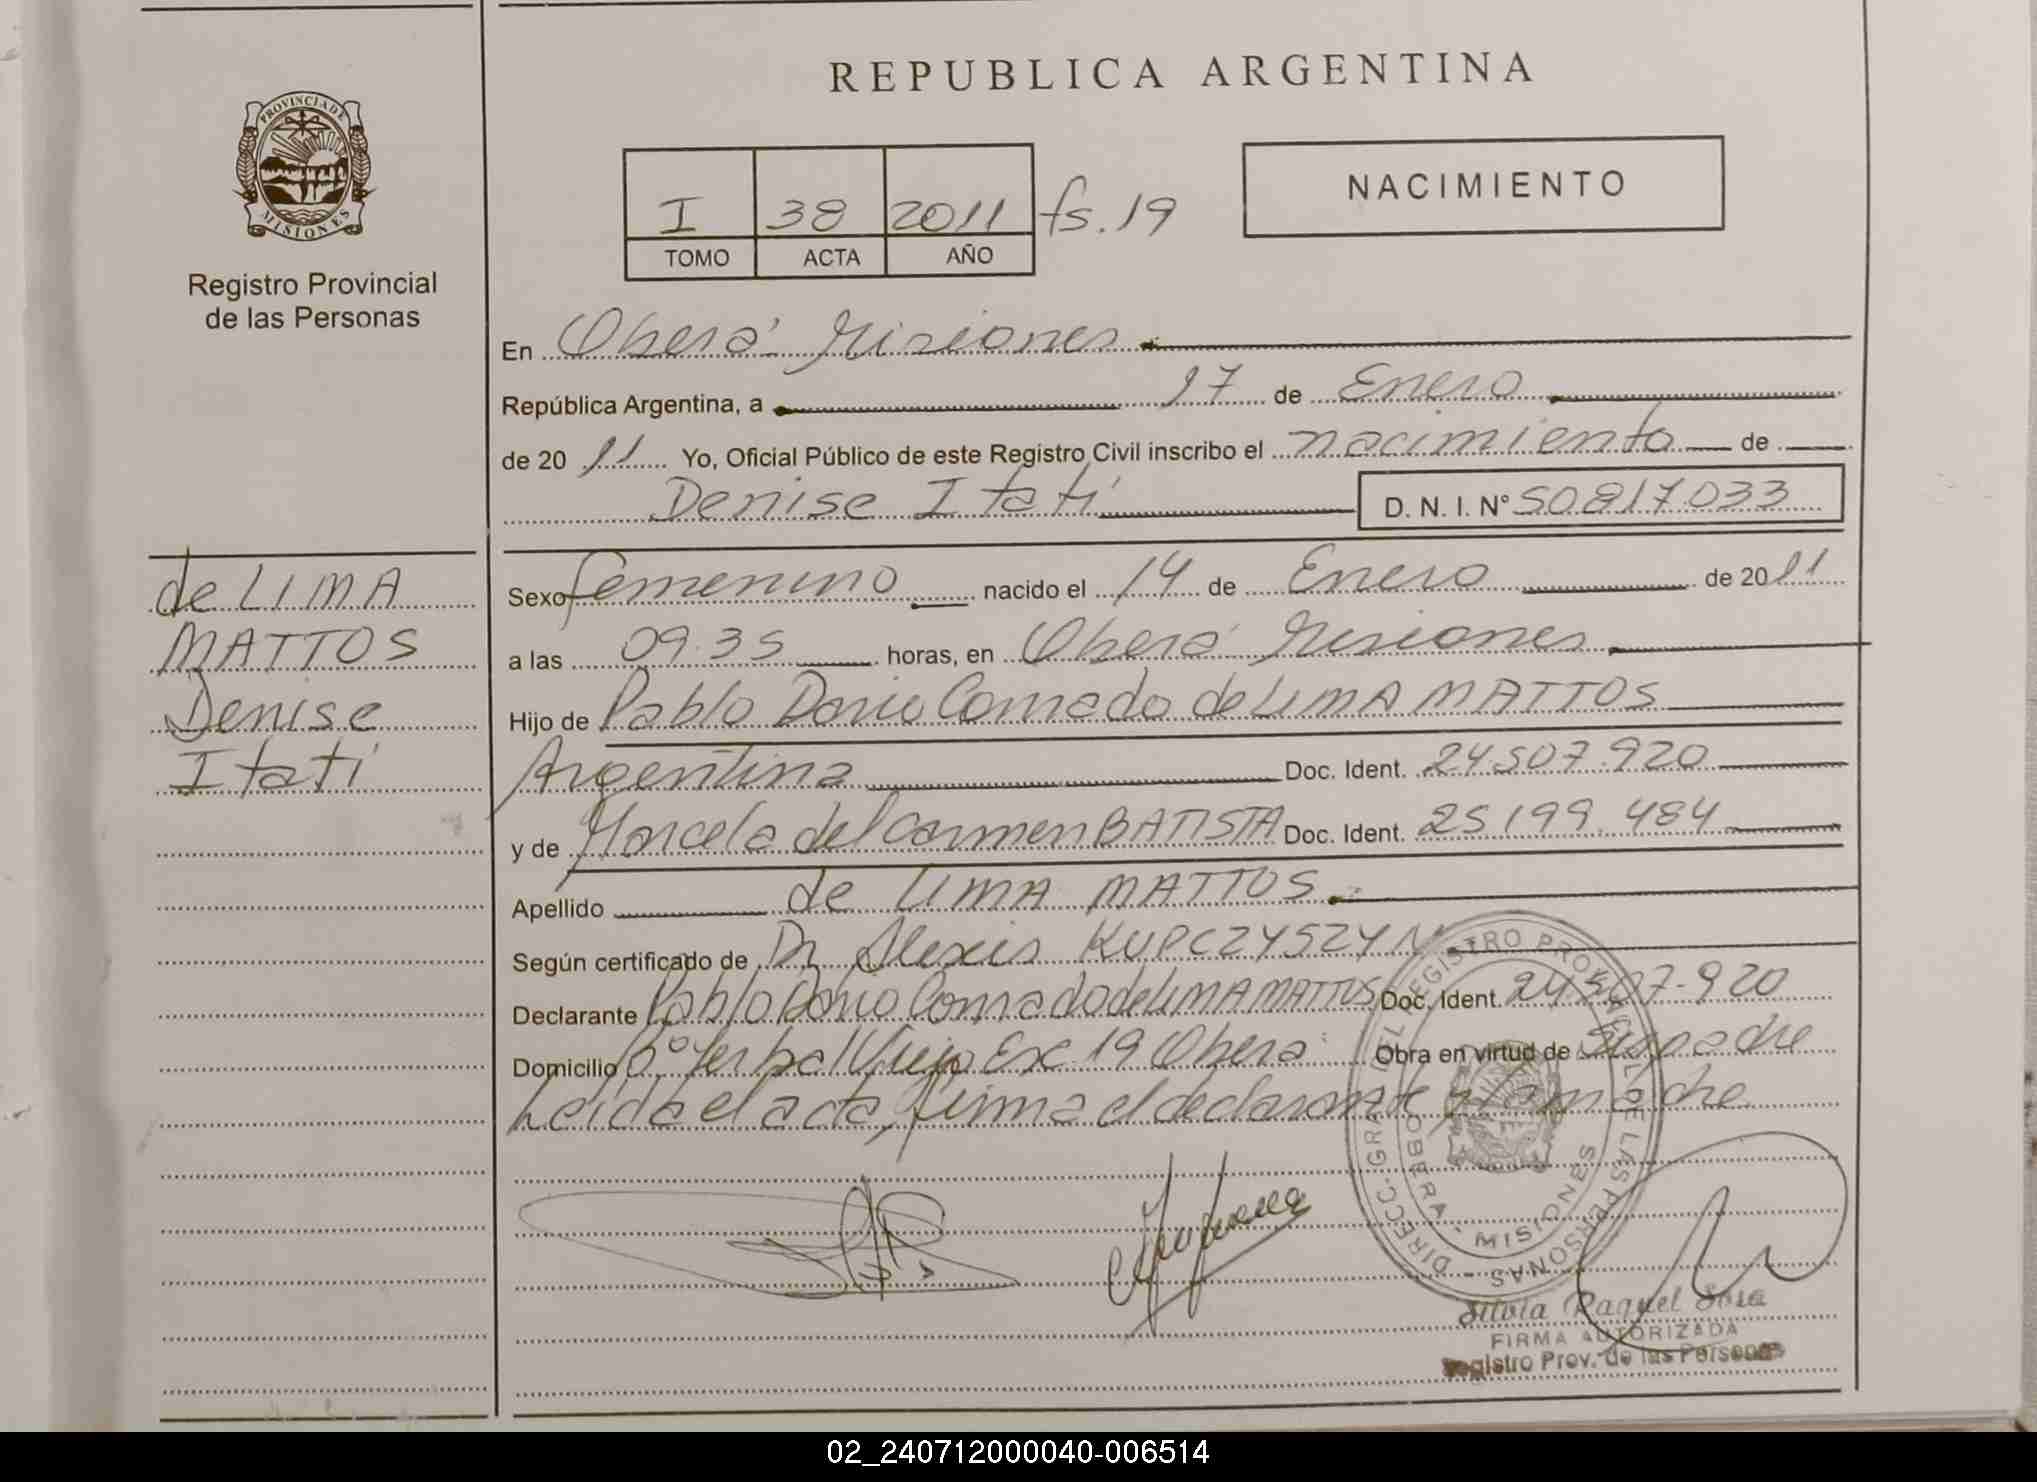 REPUBLICA ARGENTINA
PROVINCIA DE
MISIONES
Registro Provincial
de las Personas
I 38 2011 fs. 19
TOMO ACTA AÑO
NACIMIENTO
En Oberá Misiones
República Argentina, a 17 de Enero
de 20 11 Yo, Oficial Público de este Registro Civil inscribo el nacimiento de
Denise Itatí D. N. I. Nº 50817.033
de LIMA
MATTOS
Denise
Itatí
Sexo femenino nacido el 14 de Enero de 2011
a las 09.35 horas, en Oberá Misiones
Hijo de Pablo Dario Conrado de LIMA MATTOS
Argentina Doc. Ident. 24.507.920
y de Marcela del Carmen BATISTA Doc. Ident. 25 199.484
Apellido de LIMA MATTOS
Según certificado de Dr Alexis KUPCZYSZYN
Declarante Pablo Dario Conrado de LIMA MATTOS Doc. Ident. 24.507-920
Domicilio Bº Yerbal Viejo Ex. 19 Oberá Obra en virtud de Su padre
Leída el acta, firma el declarante y la madre
DIRECC. GRAL. DEL REGISTRO PROVINCIAL DE LAS PERSONAS
OBERA - MISIONES
Silvia Raquel Sosa
FIRMA AUTORIZADA
Registro Prov. de las Personas
02_240712000040-006514